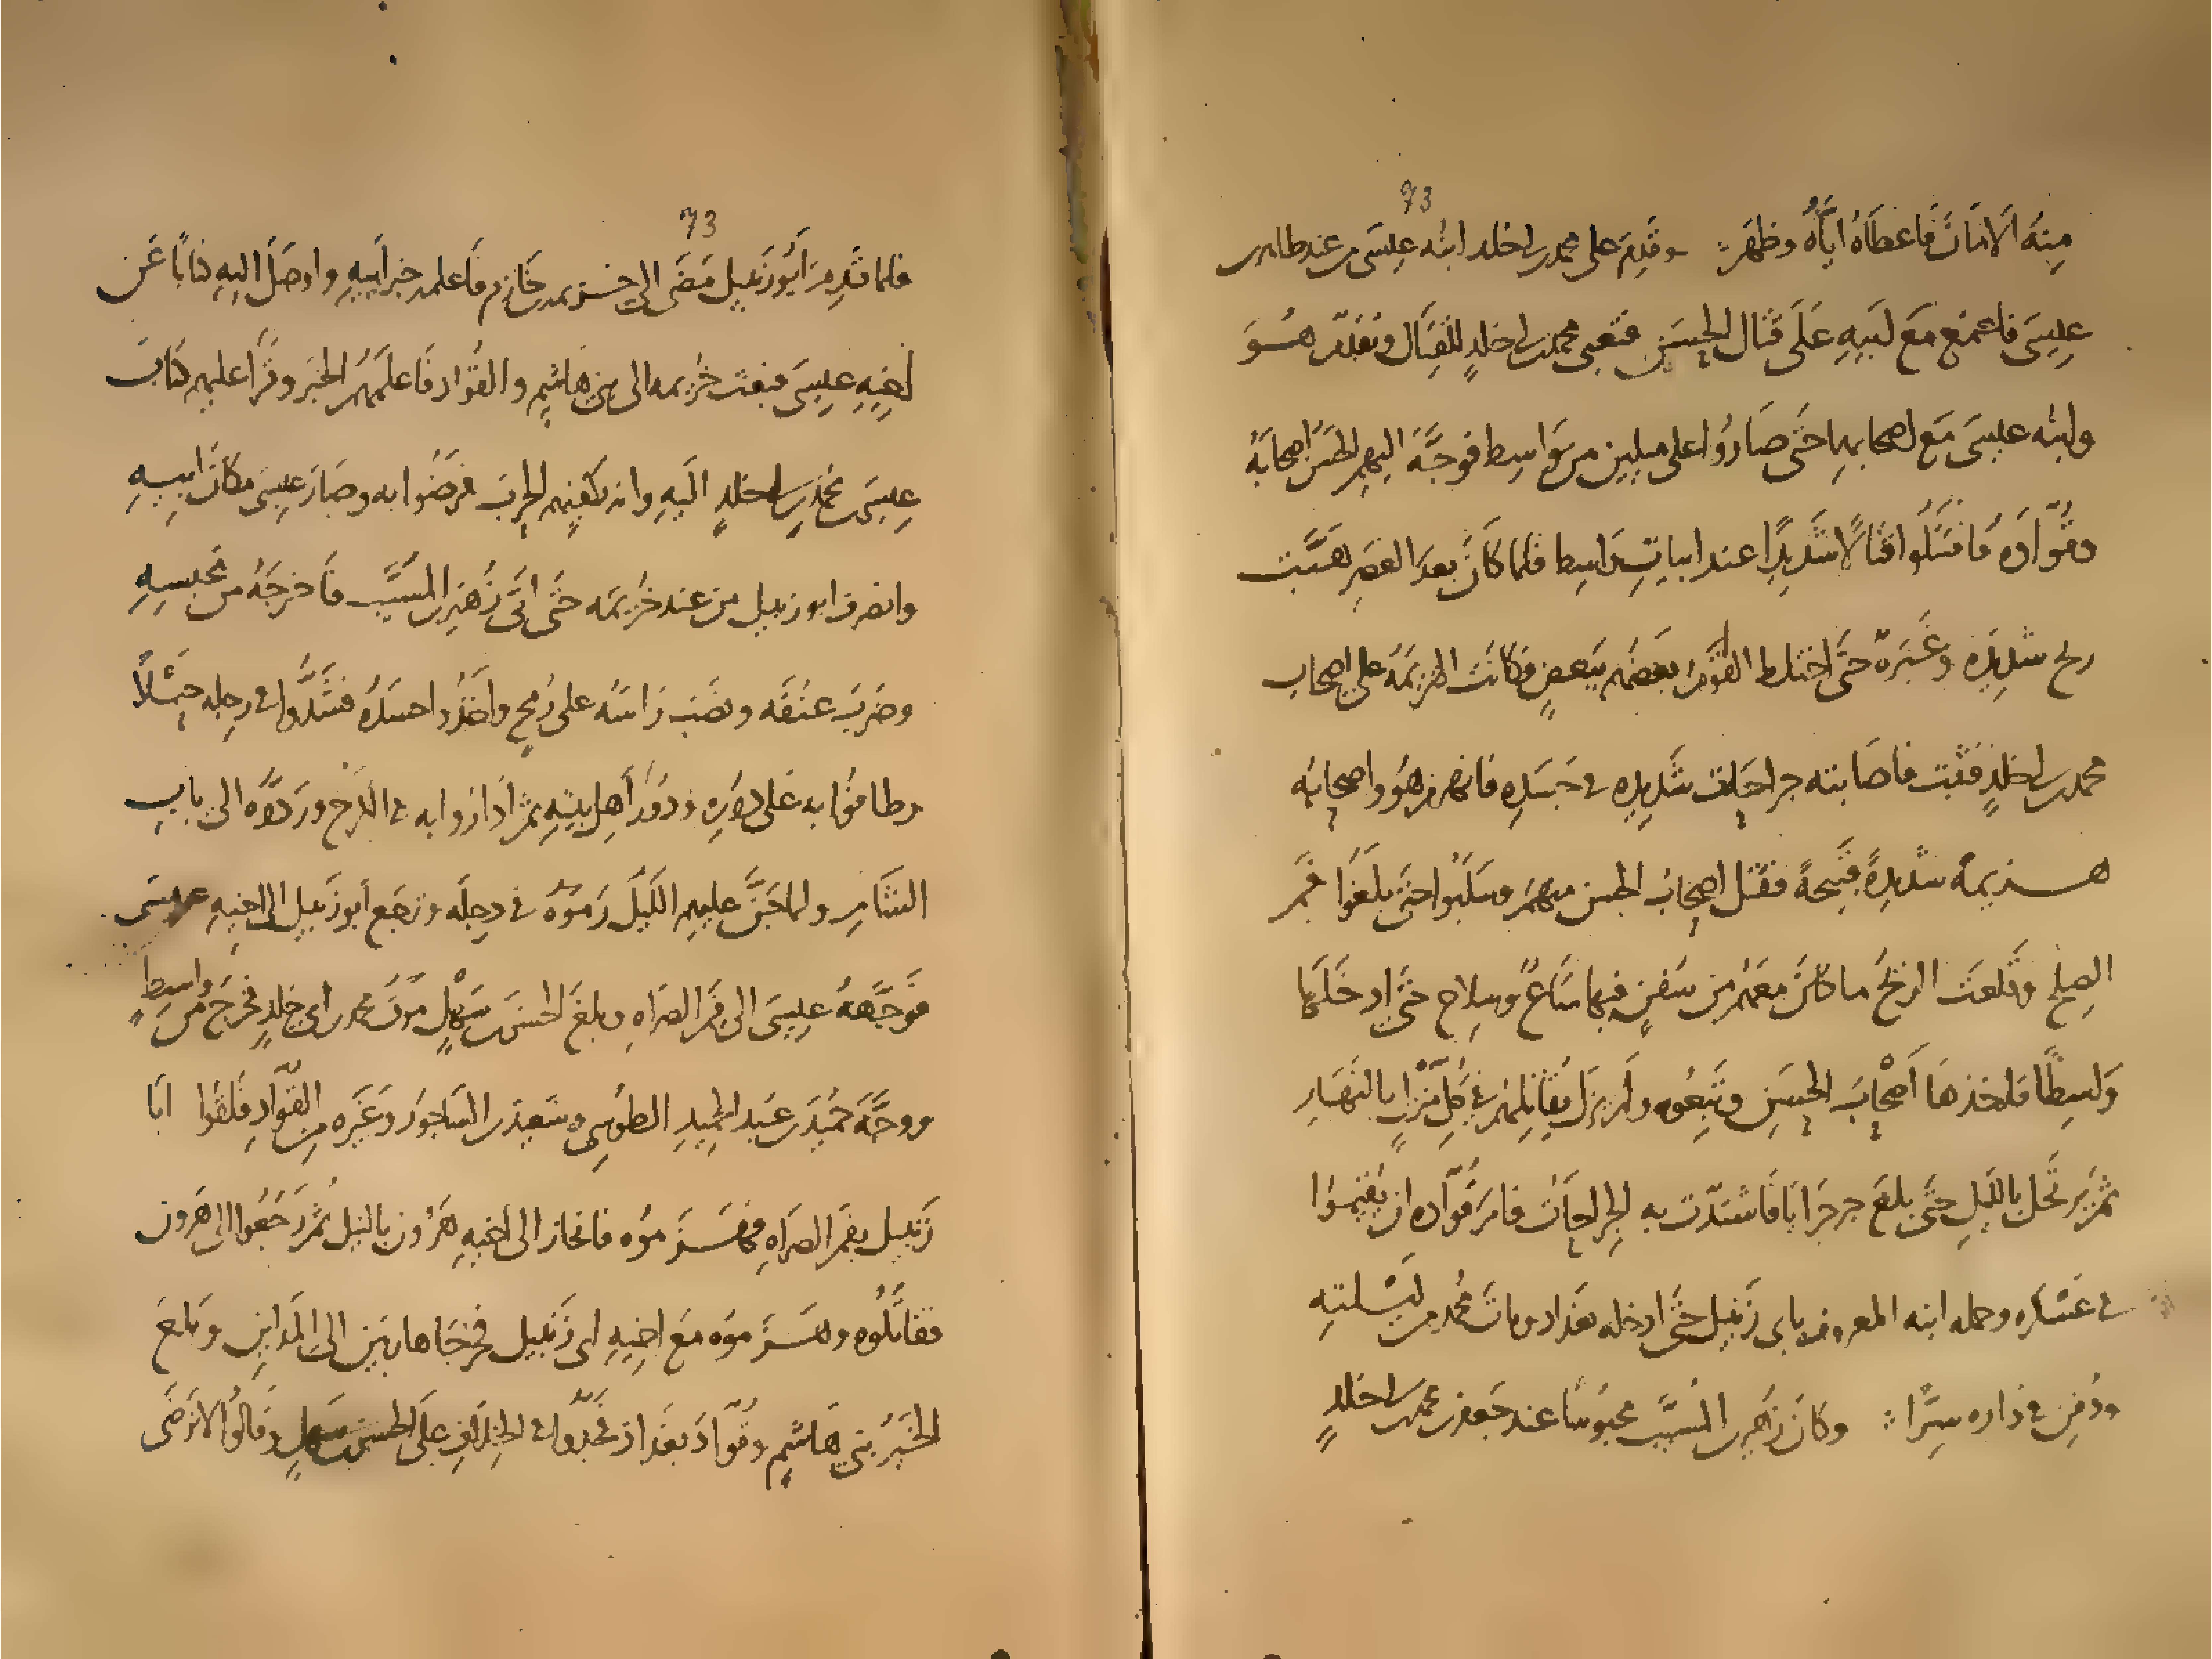 73
منه الامان فاعطاه اياه وظهر وقدم على محمد بن ابى خلد ابنه عيسى من عند طاهر بن
عيسى فاجتمع مع ابيه على قتال الحسن فتعبى محمد بن ابى خلد للقتال وتقدم هو
وابنه عيسى مع اصحابهما حتى صاروا على ميلين من واسط فوجه اليهم الحسن اصحابه
وقواده فاقتتلوا قتالا شديدا عند ابيات واسط فلما كان بعد العصر هبت
ريح شديده وغبرة حتى اختلط القوم بعضهم ببعض فكانت الهزيمة على اصحاب
محمد بن ابى خلد فثبت فاصابته جراحات شديده فى جسده فانهزم هو واصحابه
هزيمة شديدة قبيحة فقتل اصحاب الحسن منهم وسلبوا حتى بلغوا فم
الصلح وقلعت الريح ما كان معهم من سفن فيها متاع وسلاح حتى ادخلها
واسطا فاخذها اصحاب الحسن وتبعوه ولم يزل يقاتلهم فى كل منزل بالنهار
ثم يرتحل بالليل حتى بلغ جرجرايا فاشتدت به الجراحات فامر قواده ان يقيموا
فى عسكره وحمله ابنه المعروف بابى زنبيل حتى ادخله بغداد ومات محمد من ليلته
ودفن فى داره سرا وكان زهير بن المسيب محبوسا عند جعفر بن محمد بن ابى خلد
73
فلما قدم ابو زنبيل مضى الى خزيمه بن خازم فاعلمه خبر ابيه واوصل اليه كتابا عن
اخيه عيسى فبعث خزيمه الى بنى هاشم والقواد فاعلمهم الخبر وقرا عليهم كتاب
عيسى بن محمد بن ابى خلد اليه وانه يكفيهم الحرب فرضوا به وصار عيسى مكان ابيه
وانصرف ابو زنبيل من عند خزيمه حتى اتى زهير بن المسيب فاخرجه من محبسه
وضرب عنقه ونصب راسه على رمح واخذوا جسده فشدوا فى رجله حبلا
وطافوا به على دوره ودور اهل بيته ثم اداروا به فى الكرخ وردوه الى باب
الشام ولما جن عليهم الليل رموه فى دجله ورجع ابو زنبيل الى اخيه عيسى
فوجهه عيسى الى فم الصراه وبلغ الحسن بن سهل موت محمد بن ابى خلد فخرج من واسط
ووجه حميد بن عبد الحميد الطوسى وسعيد بن الساجور وغيره من القواد فلقوا ابا
زنبيل بفم الصراه فهزموه فانحاز الى اخيه هرون بالنيل ثم رجعوا الى هرون
فقاتلوه وهزموه مع اخيه ابى زنبيل فخرجا هاربين الى المداين وبلغ
الخبر بنى هاشم وقواد بغداد فجدوا فى الخلاف على الحسن بن سهل وقالوا لا نرضى